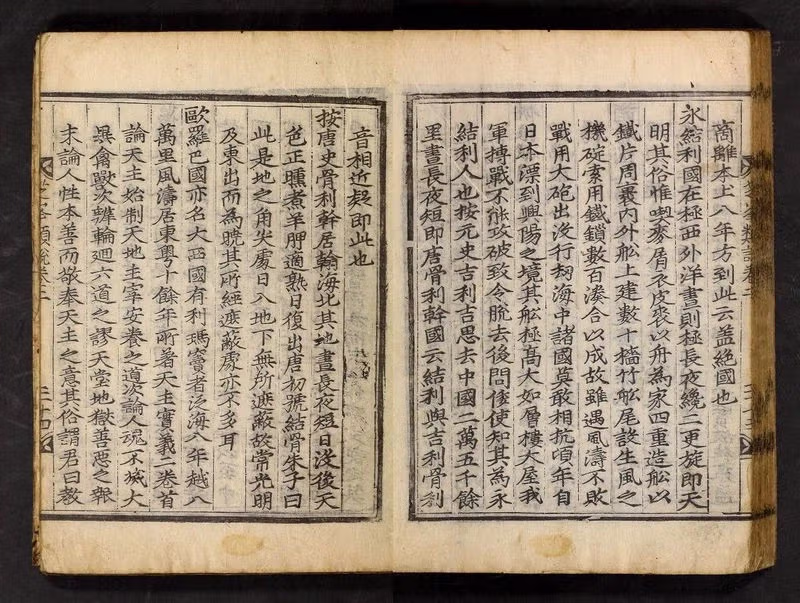 商離本土八年方到此云蓋絶國也
永結利國在極西外洋晝則極長夜纔二更旋即天
明其俗惟喫麥屑衣皮裘以舟為家四重造舩以
鐵片周裹內外舩上建數十檣竹舩尾設生風之
機碇索用鐵鎖數百湊合以成故雖遇風濤不敗
戰用大砲出沒行刼海中諸國莫敢相抗頃年自
日本漂到興陽之境其舩極高大如層樓大屋我
軍搏戰不能攻破致令脫去後問倭使知其為永
結利人也按元史吉利吉思去中國二萬五千餘
里晝長夜短即唐骨利幹國云結利與吉利骨利
音相近疑即此也
按唐史骨利幹居翰海北其地晝長夜短日沒後天
色正曛煮羊胛適熟日復出唐初號結骨朱子曰
此是地之角尖處日入地下無所遮蔽故常光明
及東出而為曉其所經遮蔽處亦不多耳
歐羅巴國亦名大西國有利瑪竇者泛海八年越八
萬里風濤居東粤十餘年所著天主實義二卷首
論天主始制天地主宰安養之道次論人魂不滅大
異禽獸次辨輪廻六道之謬天堂地獄善惡之報
末論人性本善而敬奉天主之意其俗謂君曰教
芝峯類說卷二
三十四